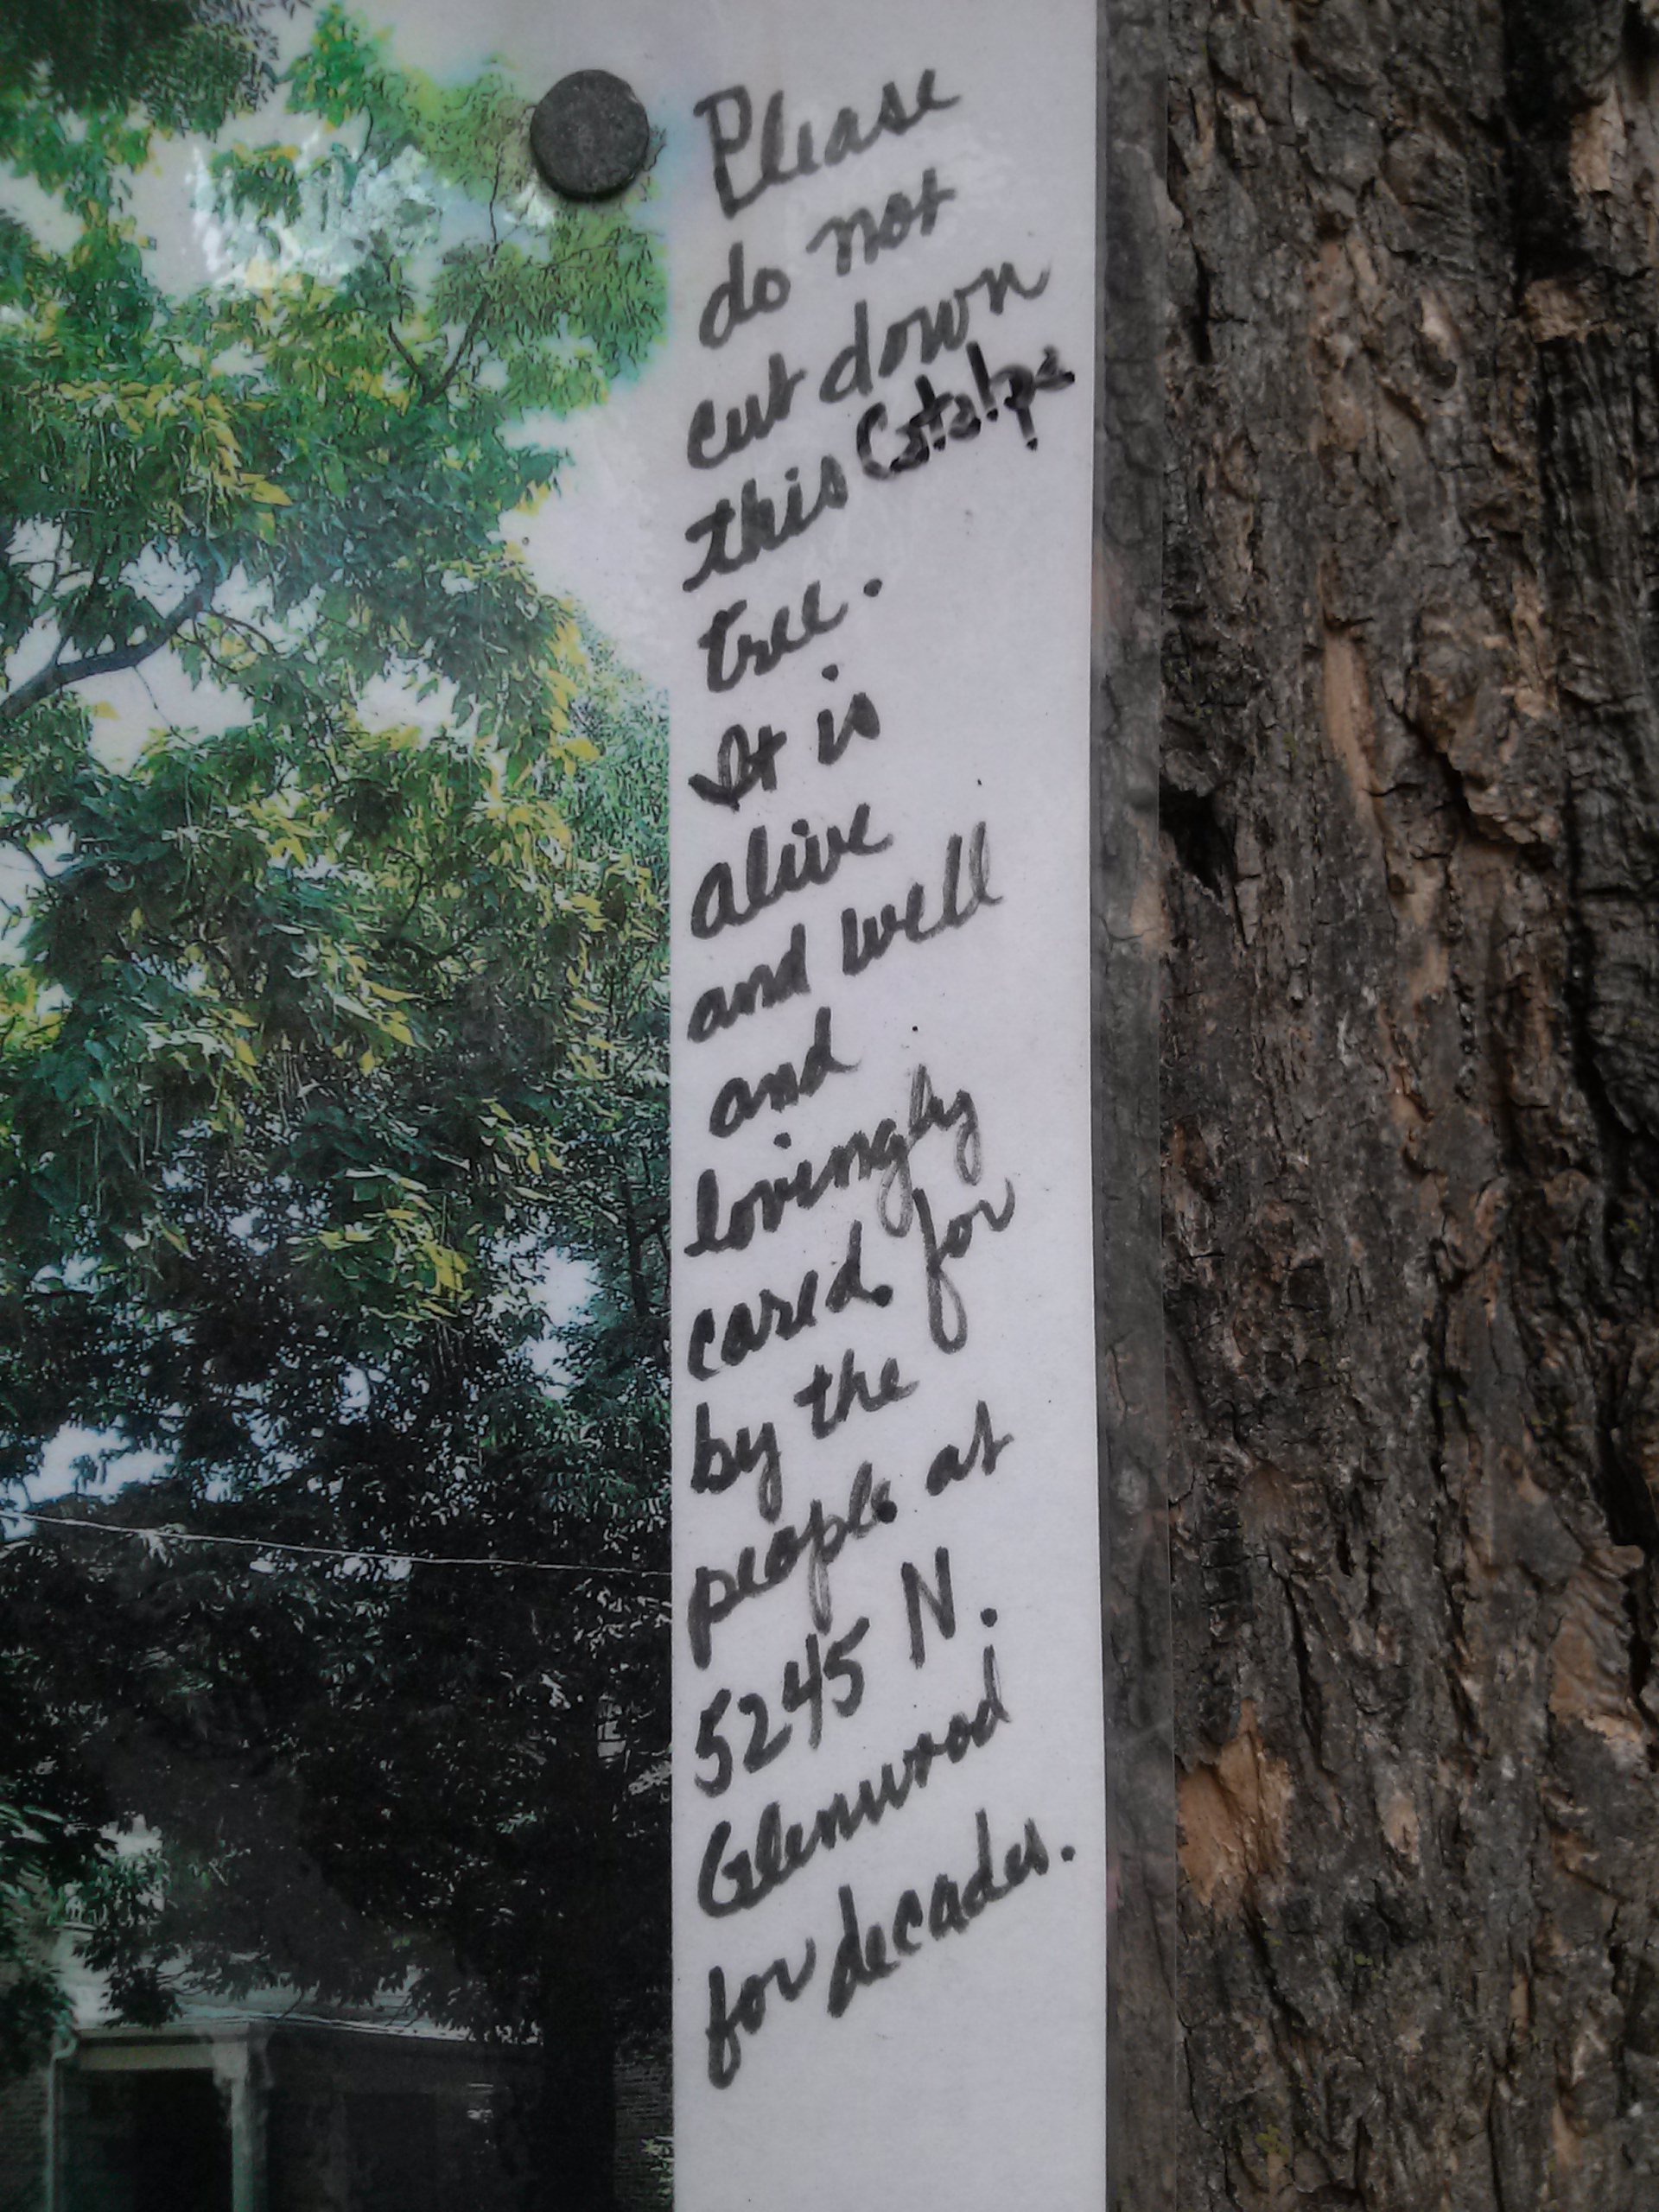 Please
do not
cut down
this Catalpa
tree.
It is
alive
and well
and
lovingly
cared for
by the
people at
5245 N.
Glenwood
for decades.